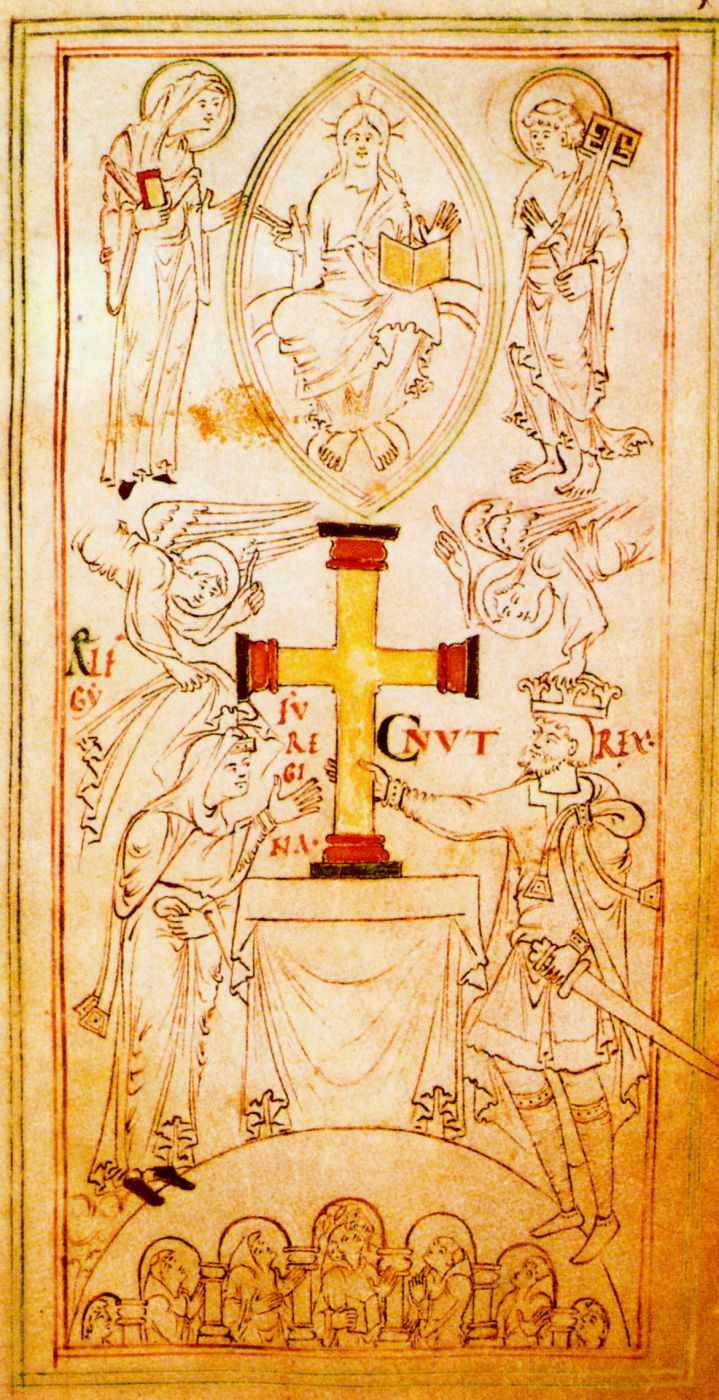 ÆLF
GẎ
FV
RE
GI
NA·
CNVT REX: